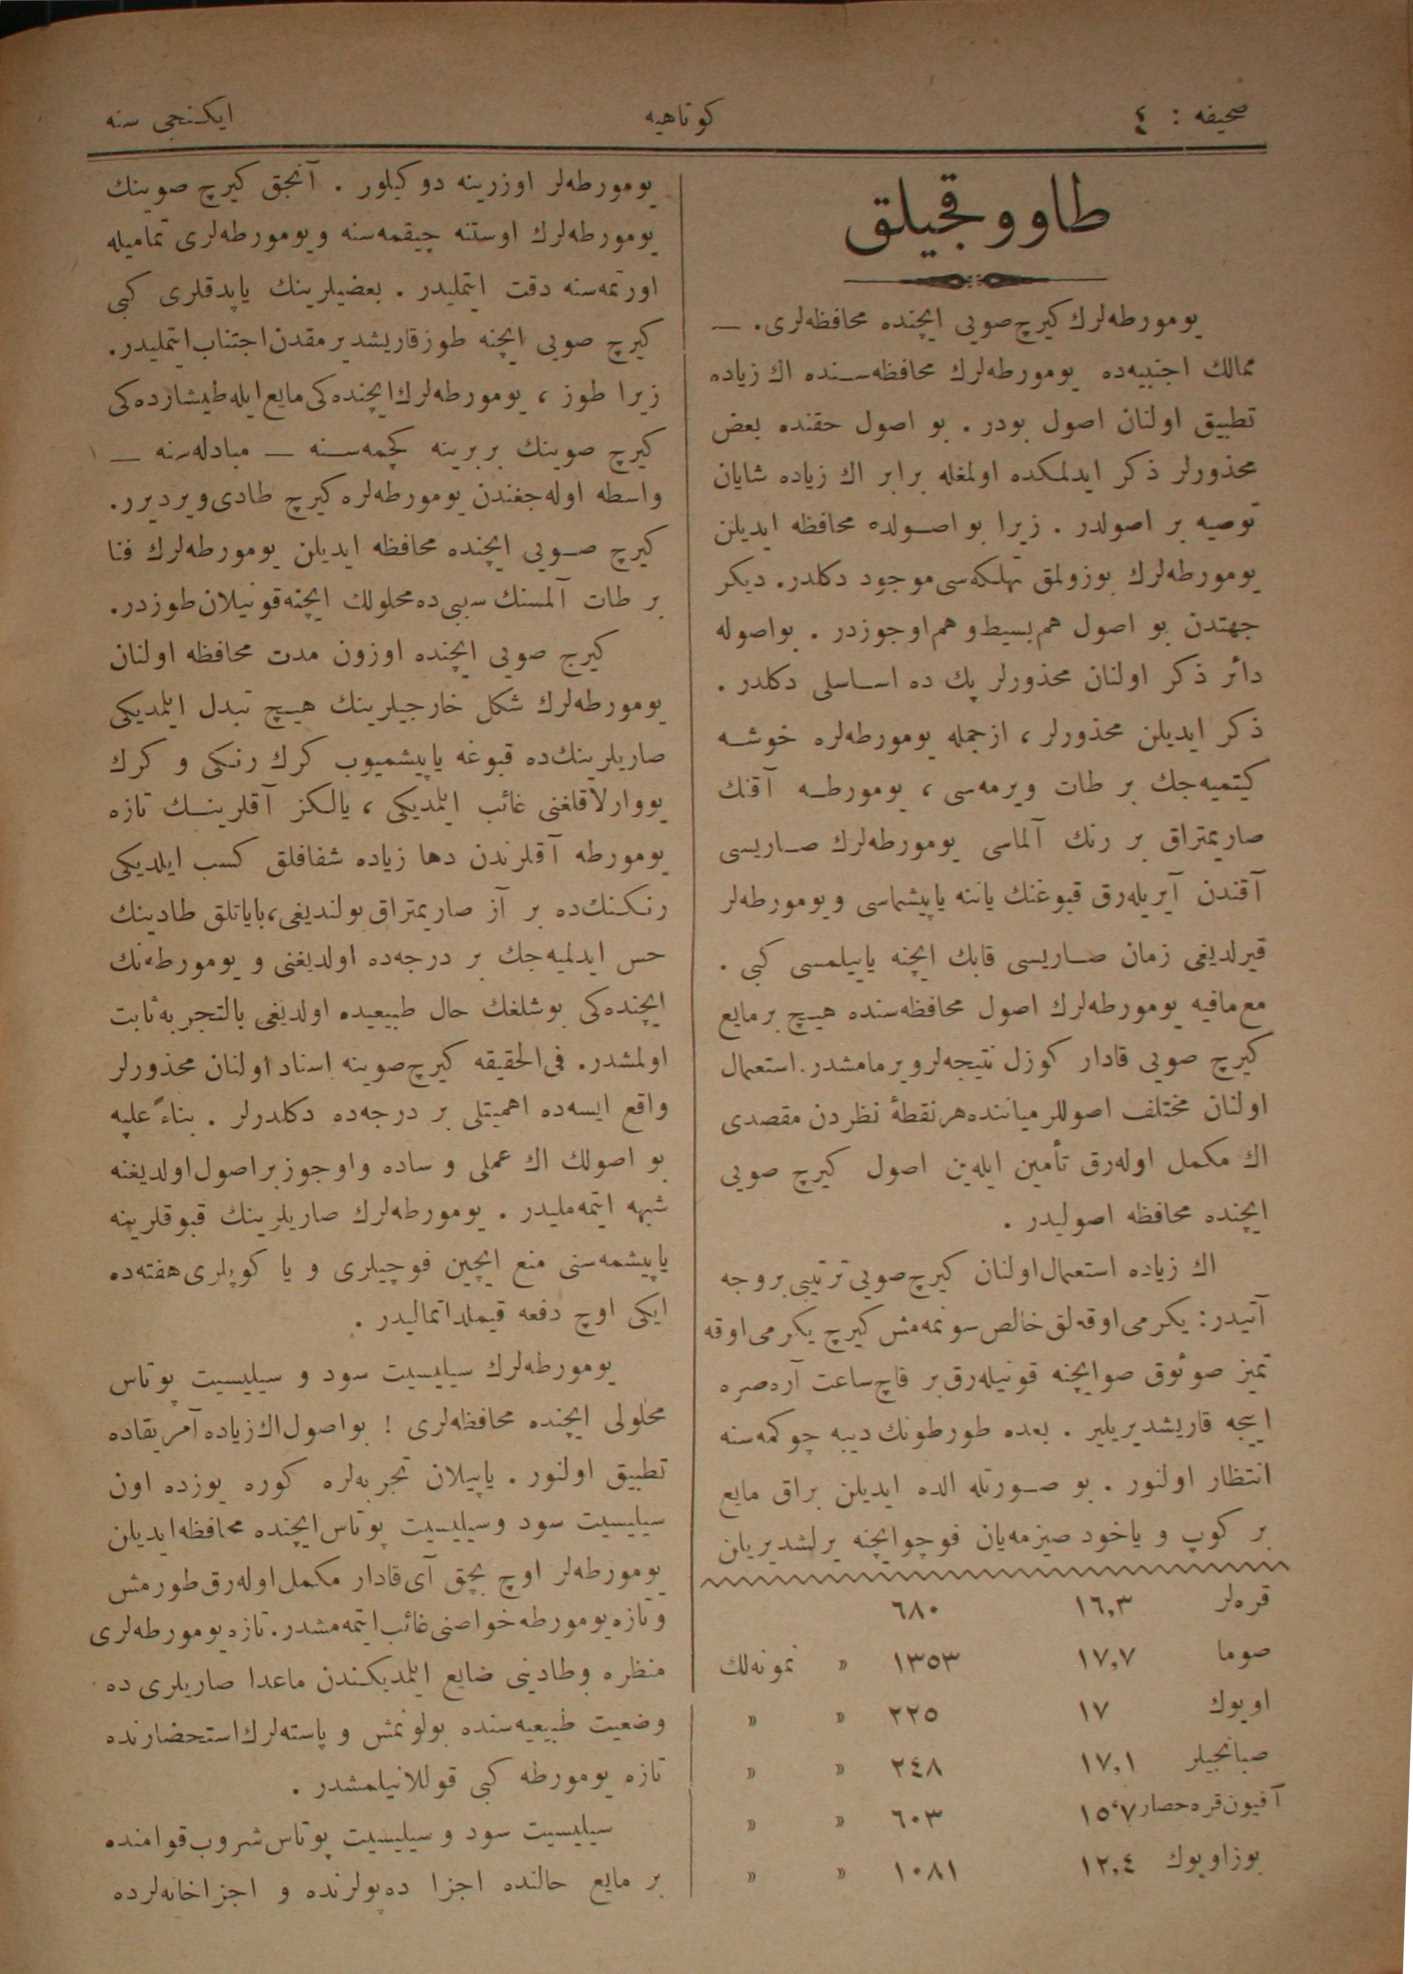 صحیفه : ٤
كوتاهیه
ایكنجی سنه
طاووقجیلق
یومورطه‌لرك كیرچ صویی ایچنده محافظه‌لری. —
ممالك اجنبیه‌ده یومورطه‌لرك محافظه‌سنده اك زیاده
تطبیق اولنان اصول بودر . بو اصول حقنده بعض
محذورلر ذكر ایدلمكده اولمغله برابر اك زیاده شایان
توصیه بر اصولدر . زیرا بو اصولده محافظه ایدیلن
یومورطه‌لرك بوزولمق تهلكه‌سی موجود دكلدر. دیكر
جهتدن بو اصول هم بسیط و هم اوجوزدر . بواصوله
دائر ذكر اولنان محذورلر پك ده اساسلی دكلدر .
ذكر ایدیلن محذورلر ، ازجمله یومورطه‌لره خوشه
كیتمیه‌جك بر طات ویرمه‌سی ، یومورطه آقنك
صاریمتراق بر رنك آلماسی یومورطه‌لرك صاریسی
آقندن آیریله‌رق قبوغنك یاننه یاپیشماسی و یومورطه‌لر
قیرلدیغی زمان صاریسی قابك ایچنه یاییلمسی كبی .
مع‌مافیه یومورطه‌لرك اصول محافظه‌سنده هیچ برمایع
كیرچ صویی قادار كوزل نتیجه‌لر ویرمامشدر. استعمال
اولنان مختلف اصوللر میاننده هر نقطهٔ نظردن مقصدی
اك مكمل اوله‌رق تأمین ایله‌ین اصول كیرچ صویی
ایچنده محافظه اصولیدر .
اك زیاده استعمال اولنان كیرچ صویی ترتیبی بروجه
آتیدر: یكرمی اوقه‌لق خالص سونمه‌مش كیرچ یكرمی اوقه
تمیز صوئوق صو ایچنه قونیله‌رق بر قاچ ساعت آره‌صره
اییجه قاریشدیریلیر . بعده طورطونك دیبه چوكمه‌سنه
انتظار اولنور . بو صورتله الده ایدیلن براق مایع
بر كوپ و یاخود صیزمه‌یان فوچو ایچنه یرلشدیریلن
قره‌لر ١٦,٣ ٦٨٠
صوما ١٧,٧ ١٣٥٣ » نمونه‌لك
اویوك ١٧ ٢٢٥ » »
صبانجیلر ١٧,١ ٢٤٨ » »
آفیون قره‌حصار ١٥,٧ ٦٠٣ » »
بوزاویوك ١٢,٤ ١٠٨١ » »
یومورطه‌لر اوزرینه دوكیلور . آنجق كیرچ صوینك
یومورطه‌لرك اوستنه چیقمه‌سنه و یومورطه‌لری تمامیله
اورتمه‌سنه دقت ایتملیدر . بعضیلرینك یاپدقلری كبی
كیرچ صویی ایچنه طوز قاریشدیرمقدن اجتناب ایتملیدر.
زیرا طوز ، یومورطه‌لرك ایچنده‌كی مایع ایله طیشارده‌كی
كیرچ صوینك بربرینه كچمه‌سنه — مبادله‌سنه —
واسطه اوله‌جغندن یومورطه‌لره كیرچ طادی ویردیرر.
كیرچ صویی ایچنده محافظه ایدیلن یومورطه‌لرك فنا
بر طات آلمسنك سببی ده محلولك ایچنه قونیلان طوزدر.
كیرج صویی ایچنده اوزون مدت محافظه اولنان
یومورطه‌لرك شكل خارجیلرینك هیچ تبدل ایلمدیكی
صاریلرینك‌ده قبوغه یاپیشمیوب كرك رنكی و كرك
یووارلاقلغنی غائب ایلمدیكی ، یالكز آقلرینك تازه
یومورطه آقلرندن دها زیاده شفافلق كسب ایلدیكی
رنكنك‌ده بر آز صاریمتراق بولندیغی، بایاتلق طادینك
حس ایدلمیه‌جك بر درجه‌ده اولدیغنی و یومورطه‌نك
ایچنده‌كی بوشلغك حال طبیعیده اولدیغی بالتجربه ثابت
اولمشدر. فی‌الحقیقه كیرچ صوینه اسناد اولنان محذورلر
واقع ایسه‌ده اهمیتلی بر درجه‌ده دكلدرلر . بناءً علیه
بو اصولك اك عملی و ساده و اوجوز بر اصول اولدیغنه
شبهه ایتمه‌ملیدر . یومورطه‌لرك صاریلرینك قبوقلرینه
یاپیشمه‌سنی منع ایچین فوچیلری و یا كوپلری هفته‌ده
ایكی اوچ دفعه قیملداتمالیدر .
یومورطه‌لرك سیلیسیت سود و سیلیسیت پوتاس
محلولی ایچنده محافظه‌لری ! بو اصول اك زیاده آمریقاده
تطبیق اولنور . یاپیلان تجربه‌لره كوره یوزده اون
سیلیسیت سود و سیلیسیت پوتاس ایچنده محافظه ایدیلن
یومورطه‌لر اوچ بچق آی قادار مكمل اوله‌رق طورمش
و تازه یومورطه خواصنی غائب ایتمه‌مشدر. تازه یومورطه‌لری
منظره و طادینی ضایع ایلمدیكندن ماعدا صاریلری ده
وضعیت طبیعیه‌سنده بولونمش و پاسته‌لرك استحضارنده
تازه یومورطه كبی قوللانیلمشدر .
سیلیسیت سود و سیلیسیت پوتاس شروب قوامنده
بر مایع حالنده اجزا ده‌پولرنده و اجزاخانه‌لرده